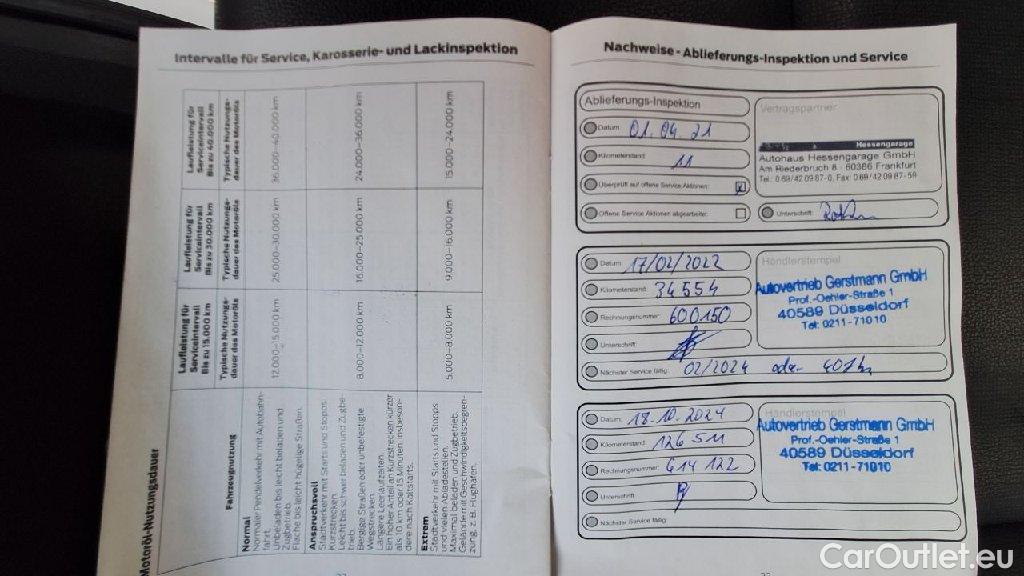 Intervalle für Service, Karosserie- und Lackinspektion
Motoröl-Nutzungsdauer
Fahrzeugnutzung
Laufleistung für
Serviceintervall
Bis zu 15.000 km
Laufleistung für
Serviceintervall
Bis zu 30.000 km
Laufleistung für
Serviceintervall
Bis zu 40.000 km
Typische Nutzungs-
dauer des Motoröls
Typische Nutzungs-
dauer des Motoröls
Typische Nutzungs-
dauer des Motoröls
Normal
Normaler Pendelverkehr mit Autobahn-
fahrt
Unbeladen bis leicht beladen und
Zugbetrieb.
Flache bis leicht hügelige Straßen.
12.000–15.000 km
25.000–30.000 km
36.000–40.000 km
Anspruchsvoll
Stadtverkehr mit Starts und Stopps.
Kurzstrecken.
Leicht bis schwer beladen und Zugbe-
trieb.
Bergige Straßen oder unbefestigte
Wegstrecken.
Längere Leerlaufzeiten.
Ein hoher Anteil an Kurzstrecken kürzer
als 10 km oder 15 Minuten, insbeson-
dere nach Kaltstarts.
8.000–12.000 km
16.000–25.000 km
24.000–36.000 km
Extrem
Stadtverkehr mit Starts und Stopps
und vielen Abladestellen.
Maximal beladen und Zugbetrieb.
Geländefahrt mit Geschwindigkeitsbegren-
zung, z. B. Flughäfen.
5.000–8.000 km
9.000–16.000 km
15.000–24.000 km
Nachweise - Ablieferungs-Inspektion und Service
Ablieferungs-Inspektion
Datum: 01.04.21
Kilometerstand: 11
Überprüft auf offene Service Aktionen:
Offene Service Aktionen abgearbeitet:
Vertragspartner
Hessengarage
Autohaus Hessengarage GmbH
Am Riederbruch 8 · 60386 Frankfurt
Tel.: 0 69/42 09 87-0, Fax: 0 69/42 09 87-59
Unterschrift:
Datum: 17/02/2022
Kilometerstand: 34554
Rechnungsnummer: 600150
Unterschrift:
Nächster Service fällig: 02/2024 oder
Händlerstempel
Autovertrieb Gerstmann GmbH
Prof.-Oehler-Straße 1
40589 Düsseldorf
Tel: 0211-71010
Datum: 18.10.2024
Kilometerstand: 126511
Rechnungsnummer: 614122
Unterschrift
Nächster Service fällig:
Händlerstempel
Autovertrieb Gerstmann GmbH
Prof.-Oehler-Straße 1
40589 Düsseldorf
Tel: 0211-71010
CarOutlet.eu